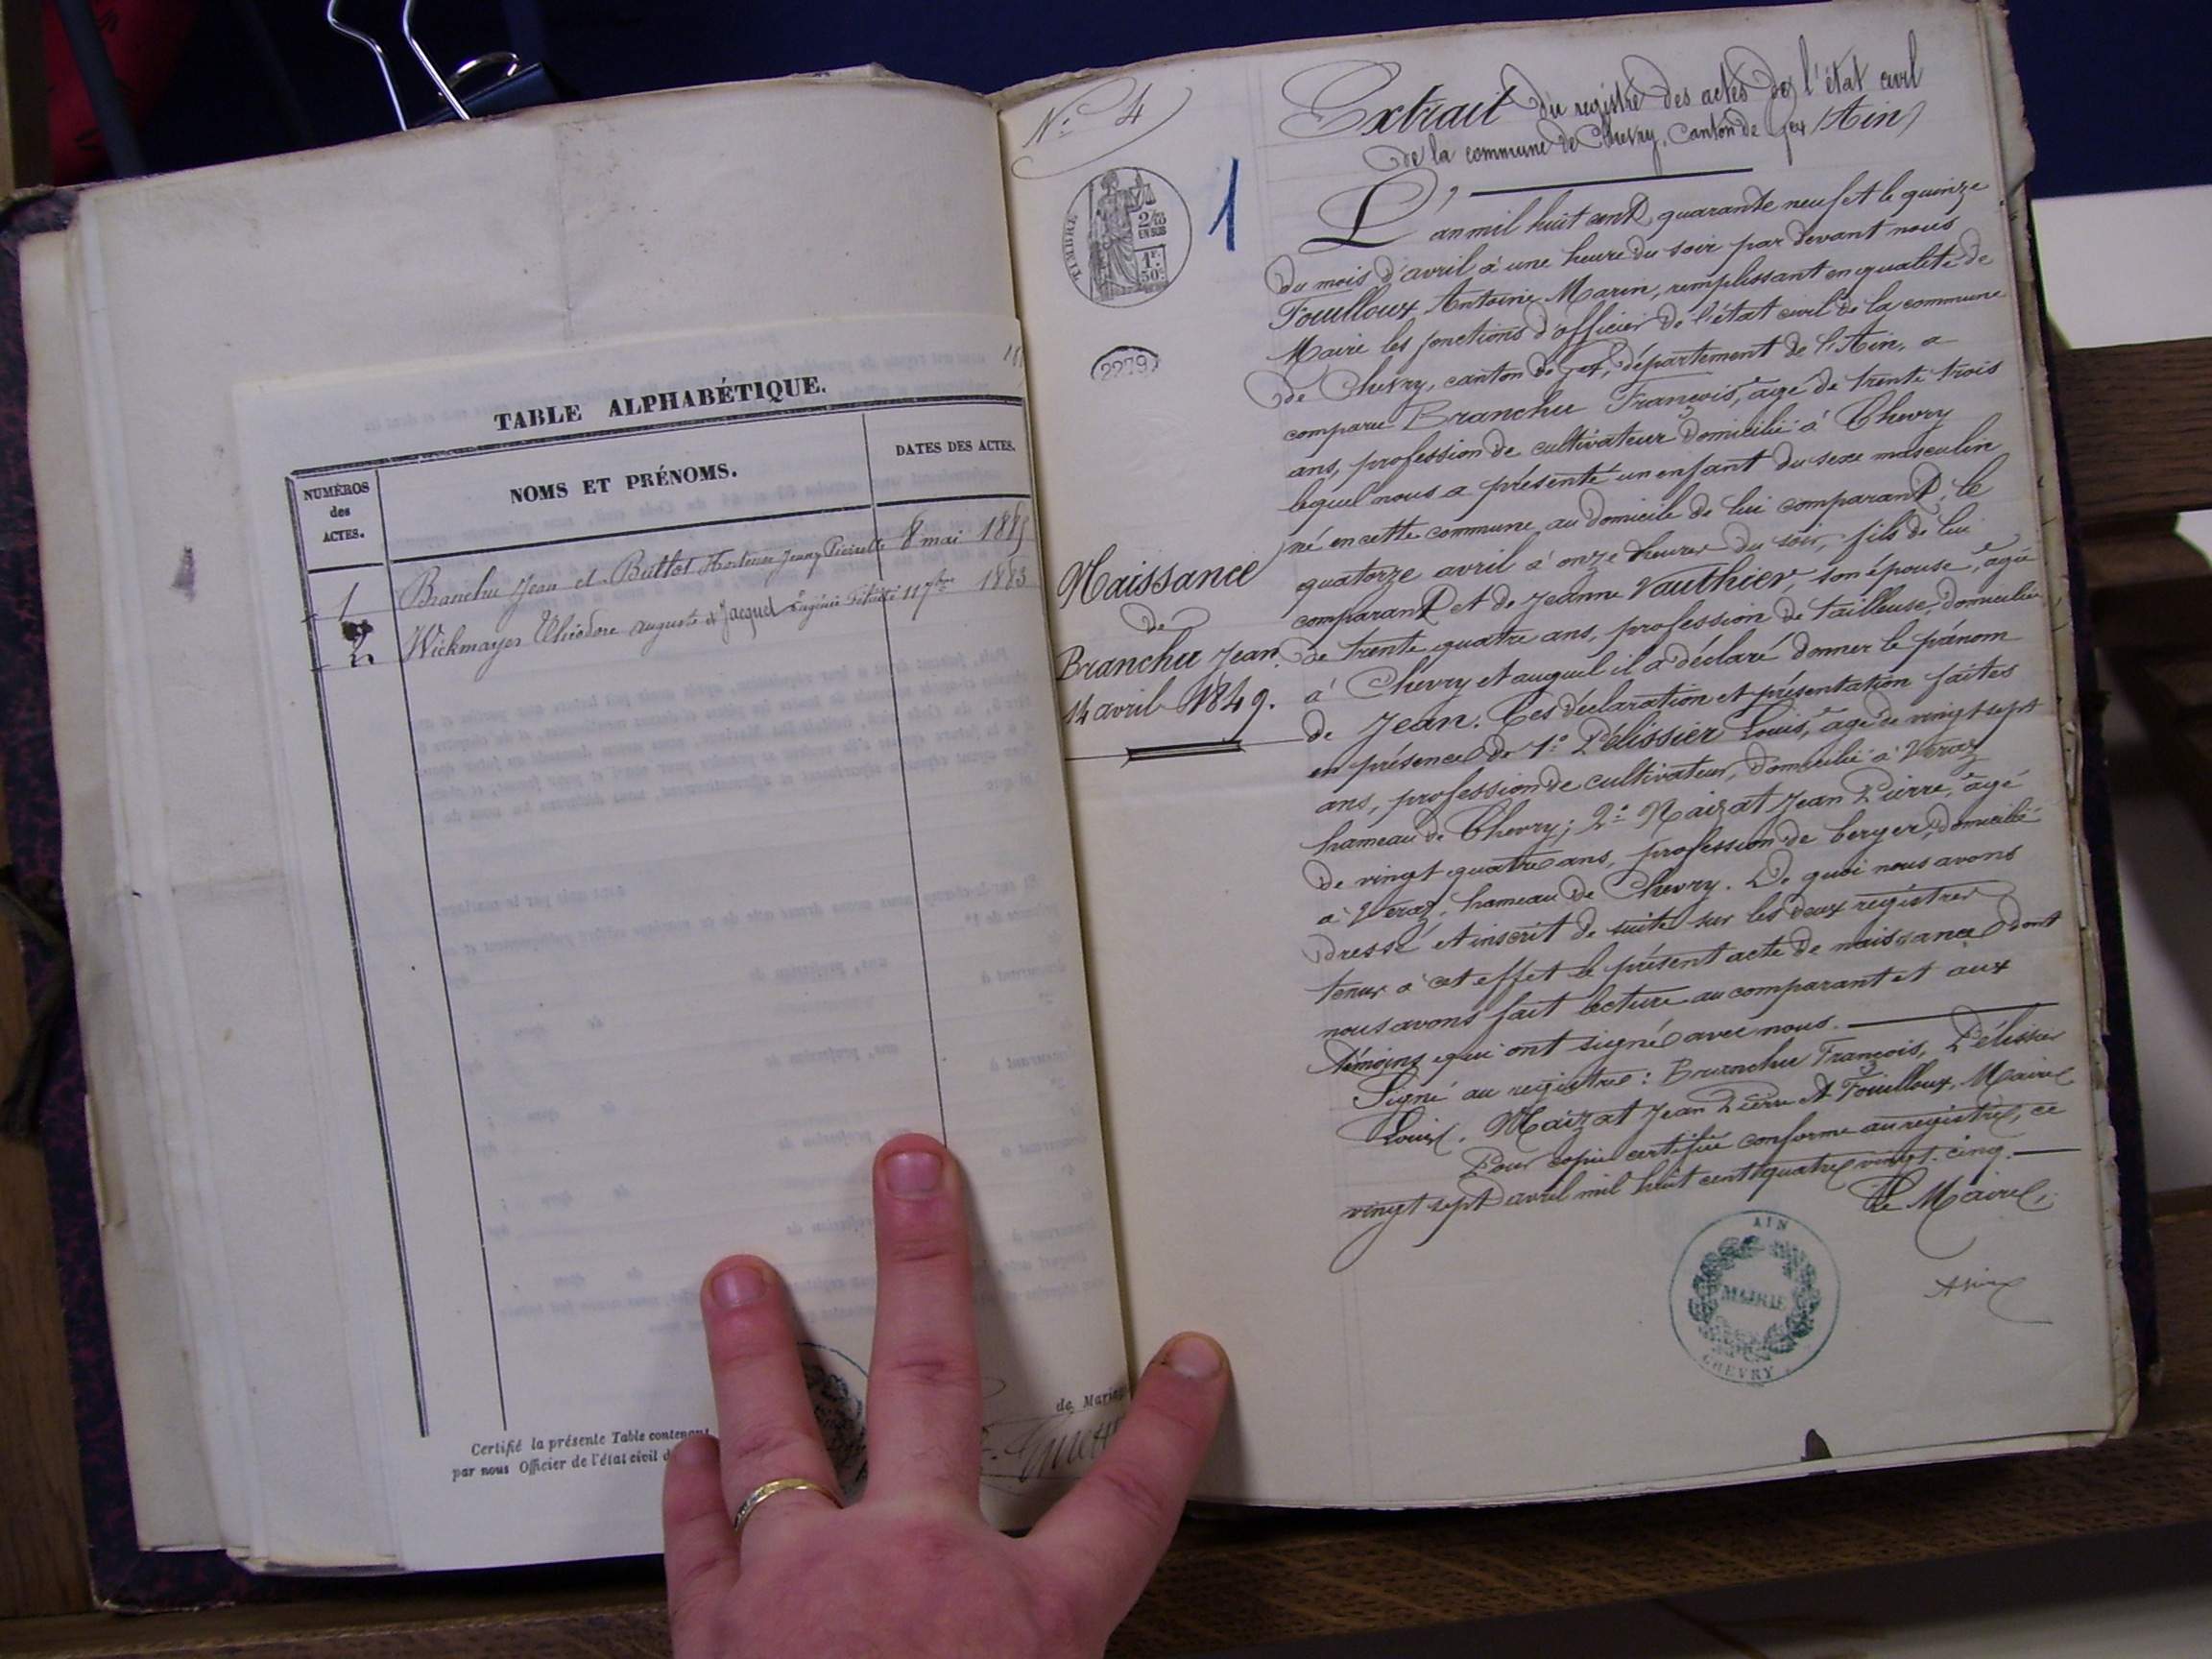 TABLE ALPHABÉTIQUE.
NUMÉROS des ACTES.
NOMS ET PRÉNOMS.
DATES DES ACTES.
1 Branchu Jean et Buttet Hortense Jeany Pierrette 8 mai 1885
2 Wickmayer Théodore Auguste et Jacquet Eugénie 11 7bre 1883
Certifié la présente Table contenant
par nous Officier de l'état civil
de Mariage
N° 4
TIMBRE
2/10
EN SUS
1F.
50C.
1
2279
Naissance
de
Branchu Jean.
14 avril 1849.
Extrait du registre des actes de l'état civil
de la commune de Chevry, Canton de Gex (Ain)
L'an mil huit cent quarante neuf et le quinze
du mois d'avril à une heure du soir par devant nous
Fouilloux Antoine Marin, remplissant en qualité de
Maire les fonctions d'officier de l'état civil de la commune
de Chevry, canton de Gex, département de l'Ain, a
comparu Branchu François, âgé de trente trois
ans, profession de cultivateur domicilié à Chevry
lequel nous a présenté un enfant du sexe masculin
né en cette commune, au domicile de lui comparant, le
quatorze avril à onze heures du soir, fils de lui
comparant et de Jeanne Vauthier son épouse, âgée
de trente quatre ans, profession de tailleuse, domiciliée
à Chevry et auquel il a déclaré donner le prénom
de Jean. Ces déclaration et présentation faites
en présence de 1° Pélissier Louis, âgé de vingt sept
ans, profession de cultivateur, domicilié à Véraz
hameau de Chevry; 2° Maizat Jean Pierre, âgé
de vingt quatre ans, profession de berger, domicilié
à Véraz, hameau de Chevry. De quoi nous avons
dressé et inscrit de suite sur les deux registres
tenus à cet effet le présent acte de naissance dont
nous avons fait lecture au comparant et aux
témoins qui ont signé avec nous.
Signé au registre: Branchu François, Pélissier
Louis, Maizat Jean Pierre et Fouilloux, Maire
Pour copie certifiée conforme au registre, ce
vingt sept avril mil huit cent quatre vingt cinq.
Le Maire,
AIN
MAIRIE
CHEVRY